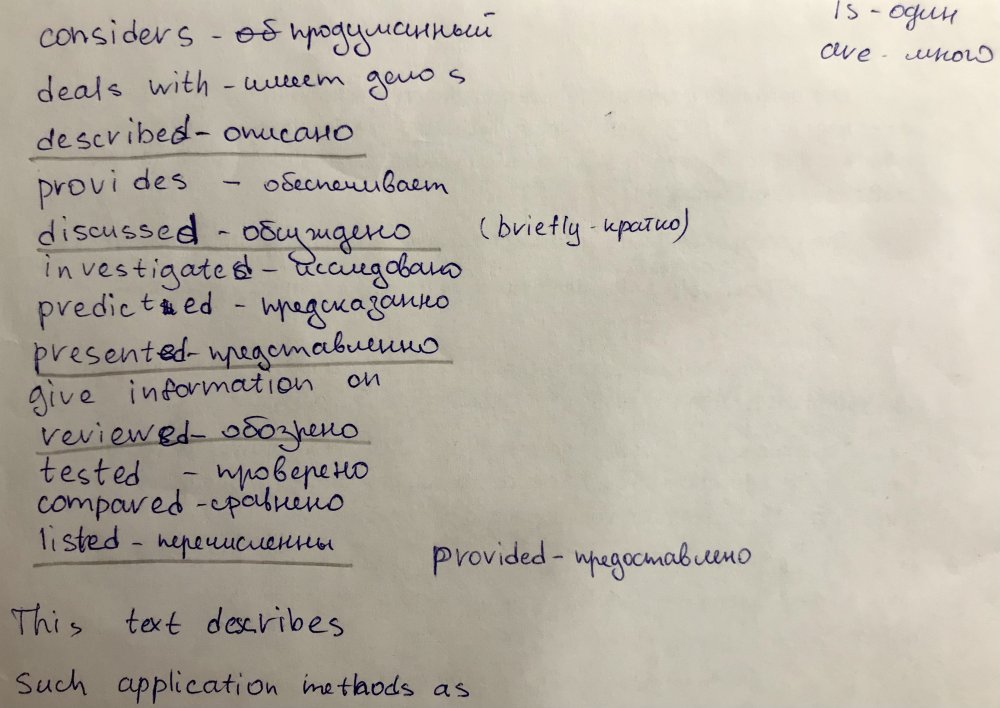 considers - об продуманный
is - один
are - много
deals with - имеет дело s
described - описано
provides - обеспечивает
discussed - обсуждено (briefly - кратко)
investigated - исследовано
predicted - предсказанно
presented - представленно
give information on
reviewed - обозрено
tested - проверено
compared - сравнено
listed - перечисленны
provided - предоставлено
This text describes
Such application methods as